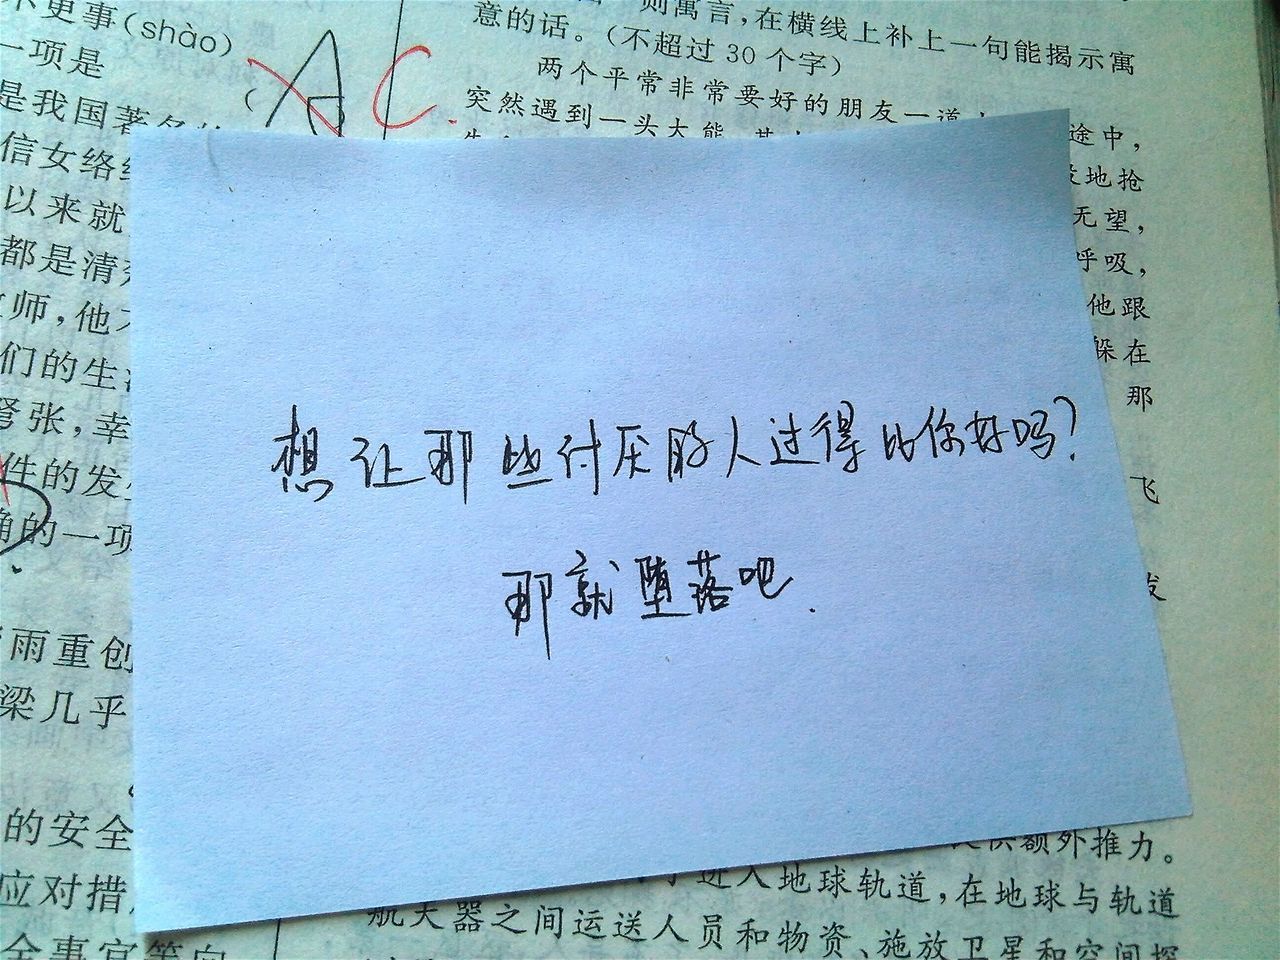 不更事(shào)
一项是
是我国著名
信女络
以来就
都是清
师,他
们的生
弩张,幸
件的发
的一项
雨重创
梁几乎
的安全
应对措
全事宜等向
A C.
则寓言,在横线上补上一句能揭示寓
意的话。(不超过 30 个字)
两个平常非常要好的朋友一道
途中,
突然遇到一头大熊
地抢
无望,
呼吸,
他跟
躲在
那
飞
想让那些讨厌的人过得比你好吗?
那就堕落吧.
供额外推力。
进入地球轨道,在地球与轨道
航天器之间运送人员和物资、施放卫星和空间探